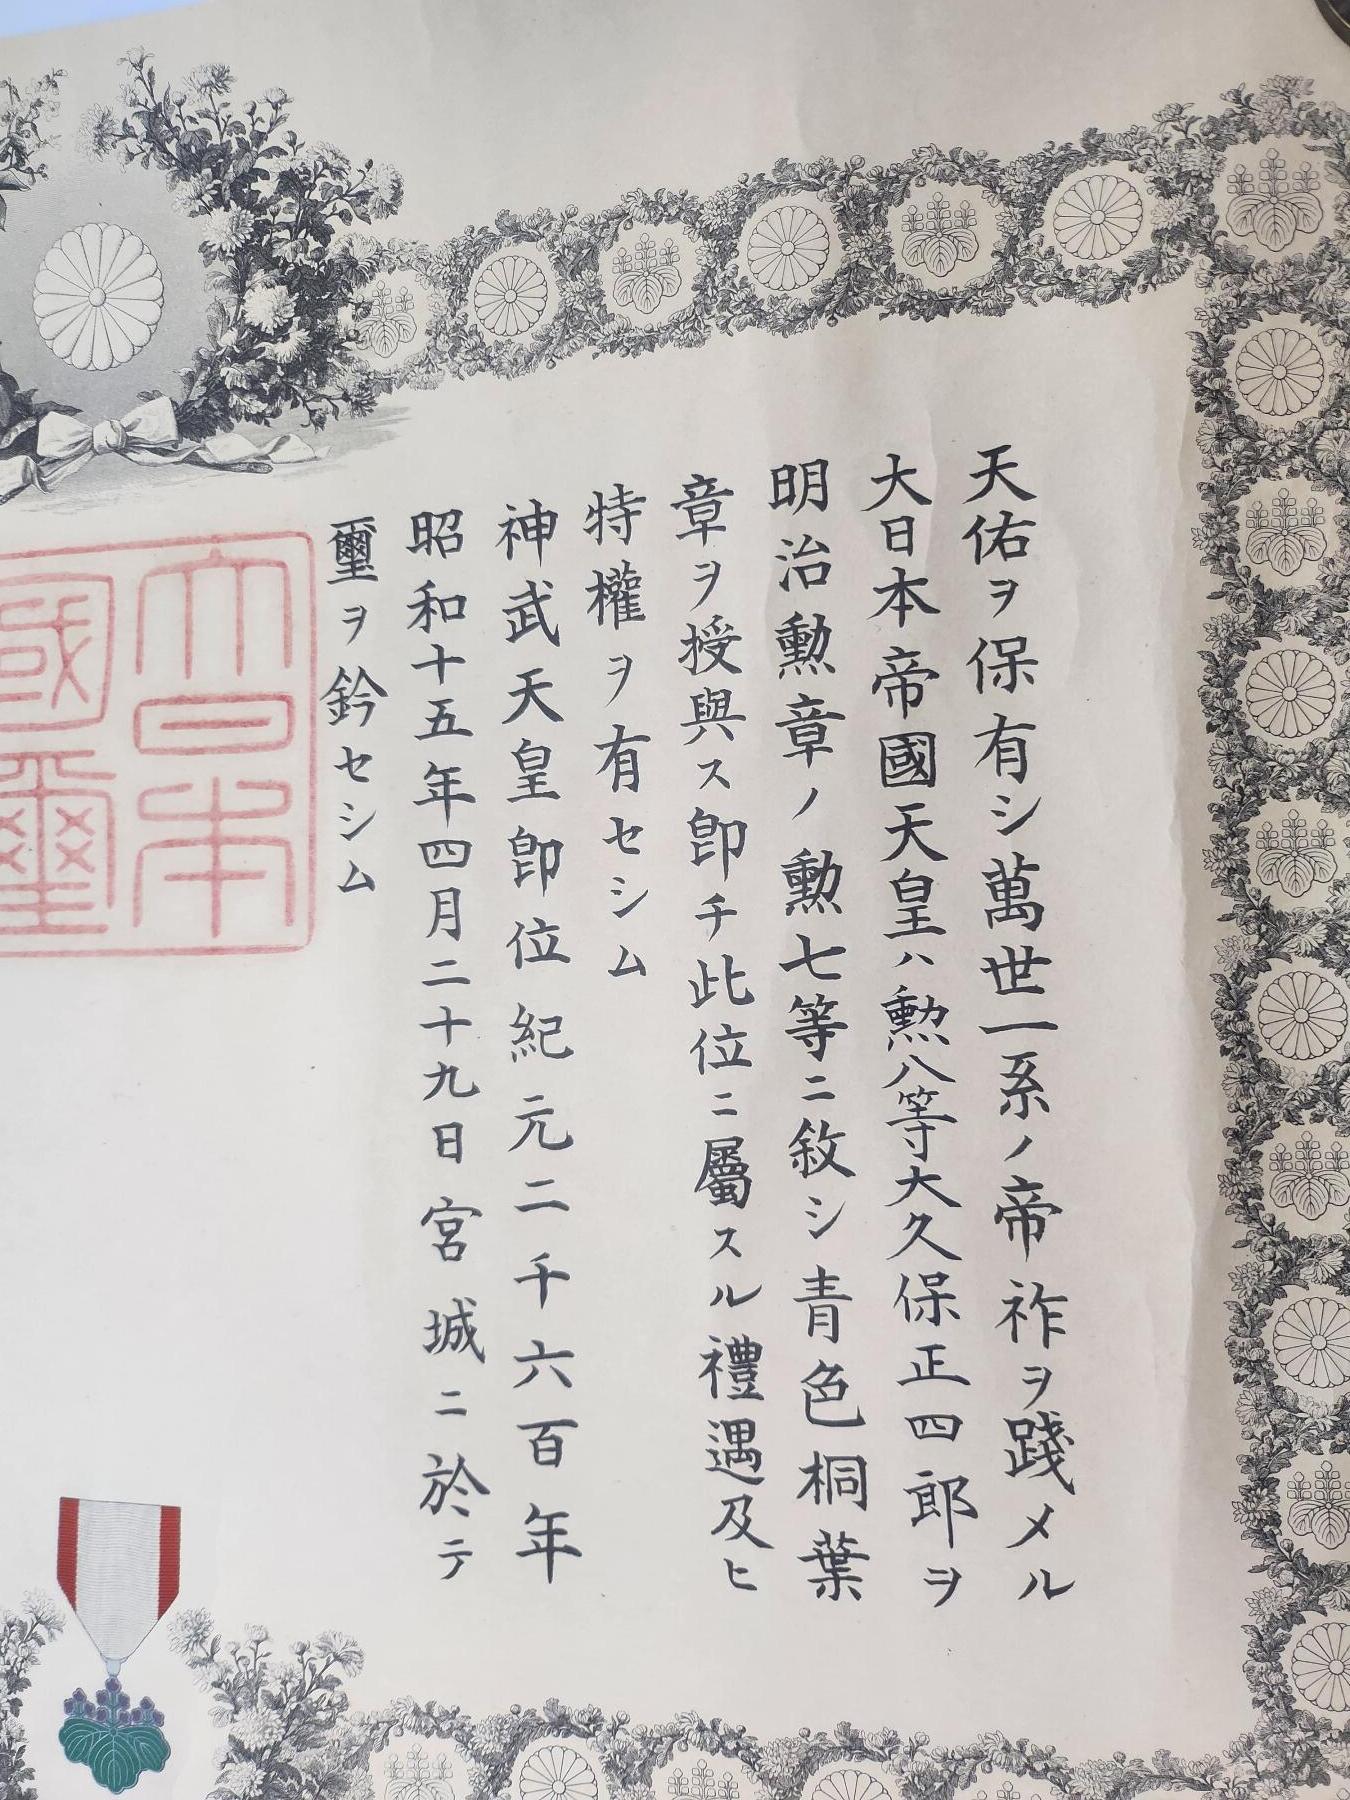 天佑ヲ保有シ萬世一系ノ帝祚ヲ踐メル
大日本帝國天皇ハ勲八等大久保正四郎ヲ
明治勲章ノ勲七等ニ敘シ青色桐葉
章ヲ授與ス卽チ此位ニ屬スル禮遇及ヒ
特權ヲ有セシム
神武天皇卽位紀元二千六百年
昭和十五年四月二十九日宮城ニ於テ
璽ヲ鈐セシム
大日本
國璽